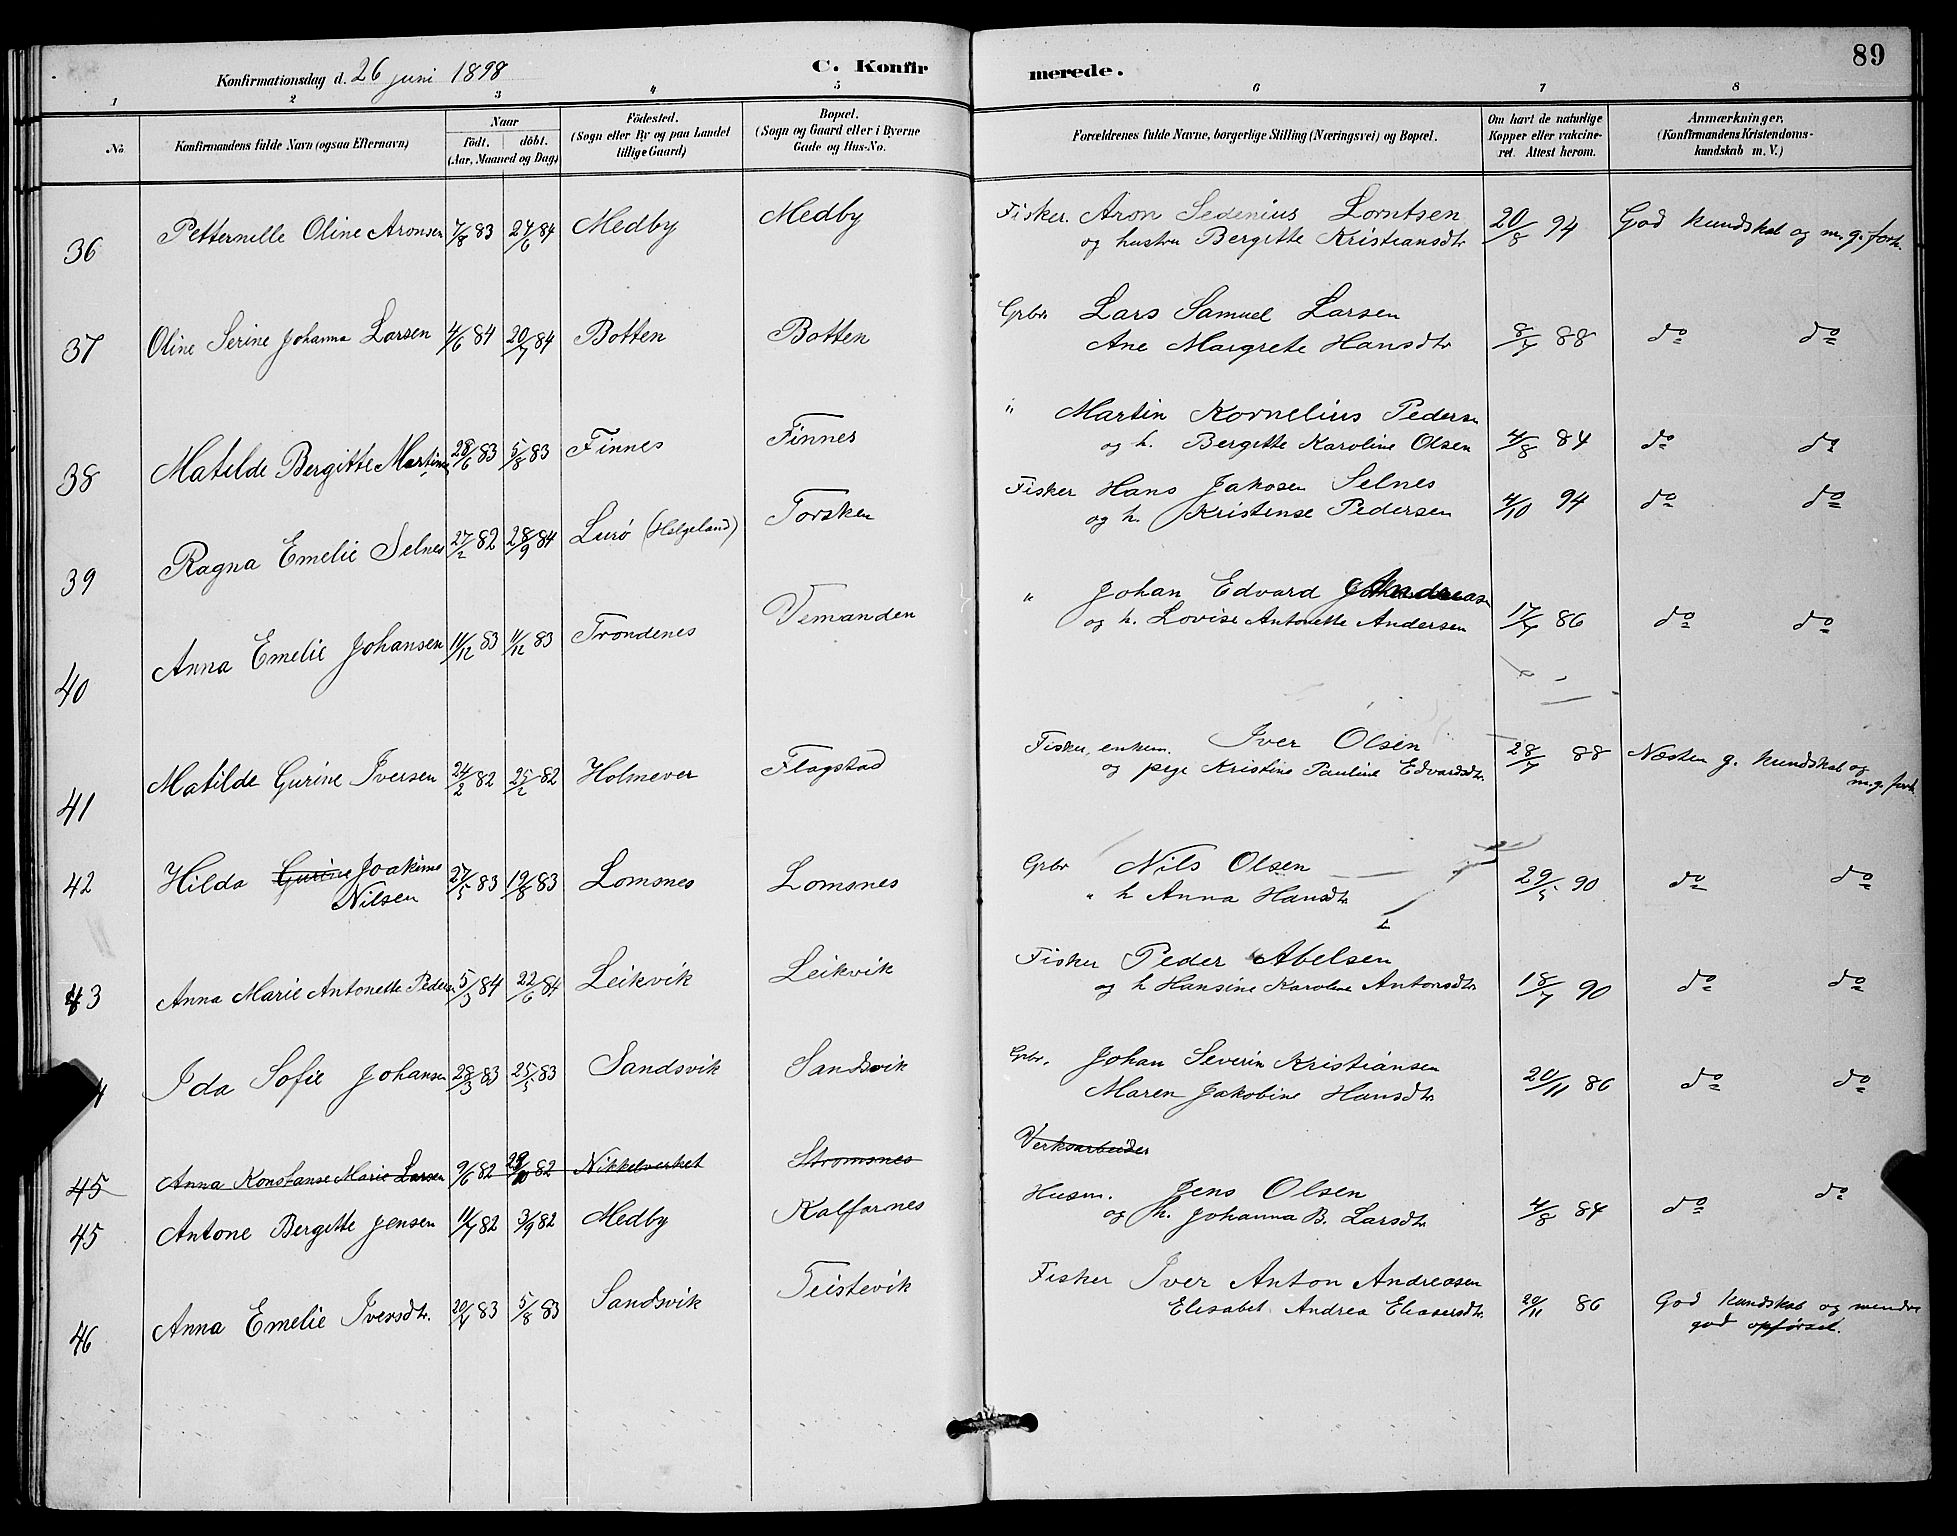 89
Konfirmationsdag d. 26 juni 1898
C. Konfir
merede.
1 2 3 4 5 6 7 8
No
Konfirmandens fulde Navn (ogsaa Efternavn)
Naar
Födt. döbt.
(Aar, Maaned og Dag)
Födested.
(Sogn eller By og paa Landet
tillige Gaard)
Bopæl.
(Sogn og Gaard eller i Byerne
Gade og Hus-No.
Forældrenes fulde Navne, borgerlige Stilling (Næringsvei) og Bopæl.
Om havt de naturlige
Kopper eller vakcine-
ret. Attest herom.
Anmærkninger,
(Konfirmandens Kristendoms-
kundskab m. V.)
36 Petternelle Oline Aronsen 7/8 83 24/6 84 Medby Medby Fisker. Aron Sedenius Lorntsen 20/8 94 God kundskab og m. g. forh.
og hustru Bergitte Kristiansdtr
37 Oline Serine Johanna Larsen 4/6 84 20/7 84 Botten Botten Grbr Lars Samuel Larsen 8/7 88 do do
Ane Margrete Hansdtr
38 Matilde Bergitte Martins 28/6 83 5/8 83 Finnes Finnes " Martin Kornelius Pedersen 4/8 84 do do
og h. Bergitte Karoline Olsen
39 Ragna Emelie Selnes 27/2 82 28/9 84 Lurö (Helgeland) Torsken Fisker Hans Jakosen Selnes 4/10 94 do do
og h. Kristense Pedersen
40 Anna Emelie Johansen 11/12 83 11/12 83 Trondenes Vemanden " Johan Edvard Andreasen 17/7 86 do do
og h. Lovise Antonette Andersen
41 Matilde Gurine Iversen 24/2 82 25/2 82 Holmever Flagstad Fisker, enkem. Iver Olsen 28/7 88 Næsten g. kundskab og
og pige Kristine Pauline Edvardsdtr. m. g. forh.
42 Hilda Gurine Joakime 27/5 83 19/8 83 Lomsnes Lomsnes Grbr Nils Olsen 29/5 90 do do
Nilsen " h Anna Hansdtr
43 Anna Marie Antonette Peders 5/3 84 22/6 84 Leikvik Leikvik Fisker Peder Abelsen 18/7 90 do do
og h Hansine Karoline Antonsdtr
4 Ida Sofie Johansen 28/3 83 25/5 83 Sandsvik Sandsvik Grbr. Johan Severin Kristiansen 20/11 86 do do
Maren Jakobine Hansdtr
45 Anna Konstanse Marie Larsen 9/6 82 29/10 82 Nikkelverket Stromsnes Verksarbeider
45 Antone Bergitte Jensen 11/7 82 3/9 82 Medby Kalfarnes Husm. Jens Olsen 4/8 84 do do
og h. Johanna B. Larsdtr
46 Anna Emelie Iversdtr. 20/4 83 5/8 83 Sandsvik Teistevik Fisker Iver Anton Andreasen 20/11 86 God kundskab og mendre
Elisabet Andrea Eliasersdtr. god opførsel.